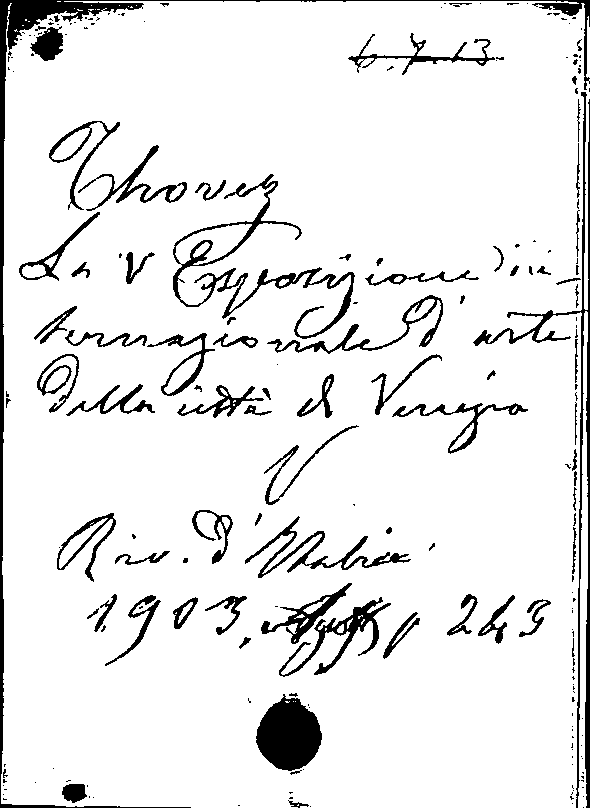 6.7.13
Thovez
La V Esposizione in-
ternazionale d'arte
della città di Venezia
V
Riv. d'Italia
1903, p 243